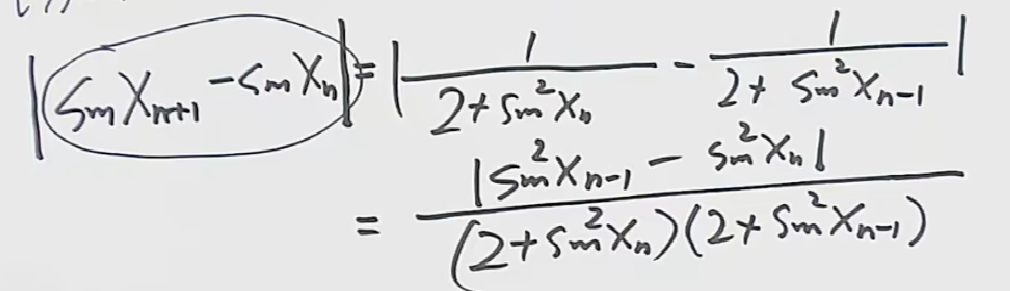 |sin X_{n+1} - sin X_n| = |\frac{1}{2+ sin^2 X_n} - \frac{1}{2+ sin^2 X_{n-1}}|
= \frac{|sin^2 X_{n-1} - sin^2 X_n|}{(2+ sin^2 X_n)(2+ sin^2 X_{n-1})}